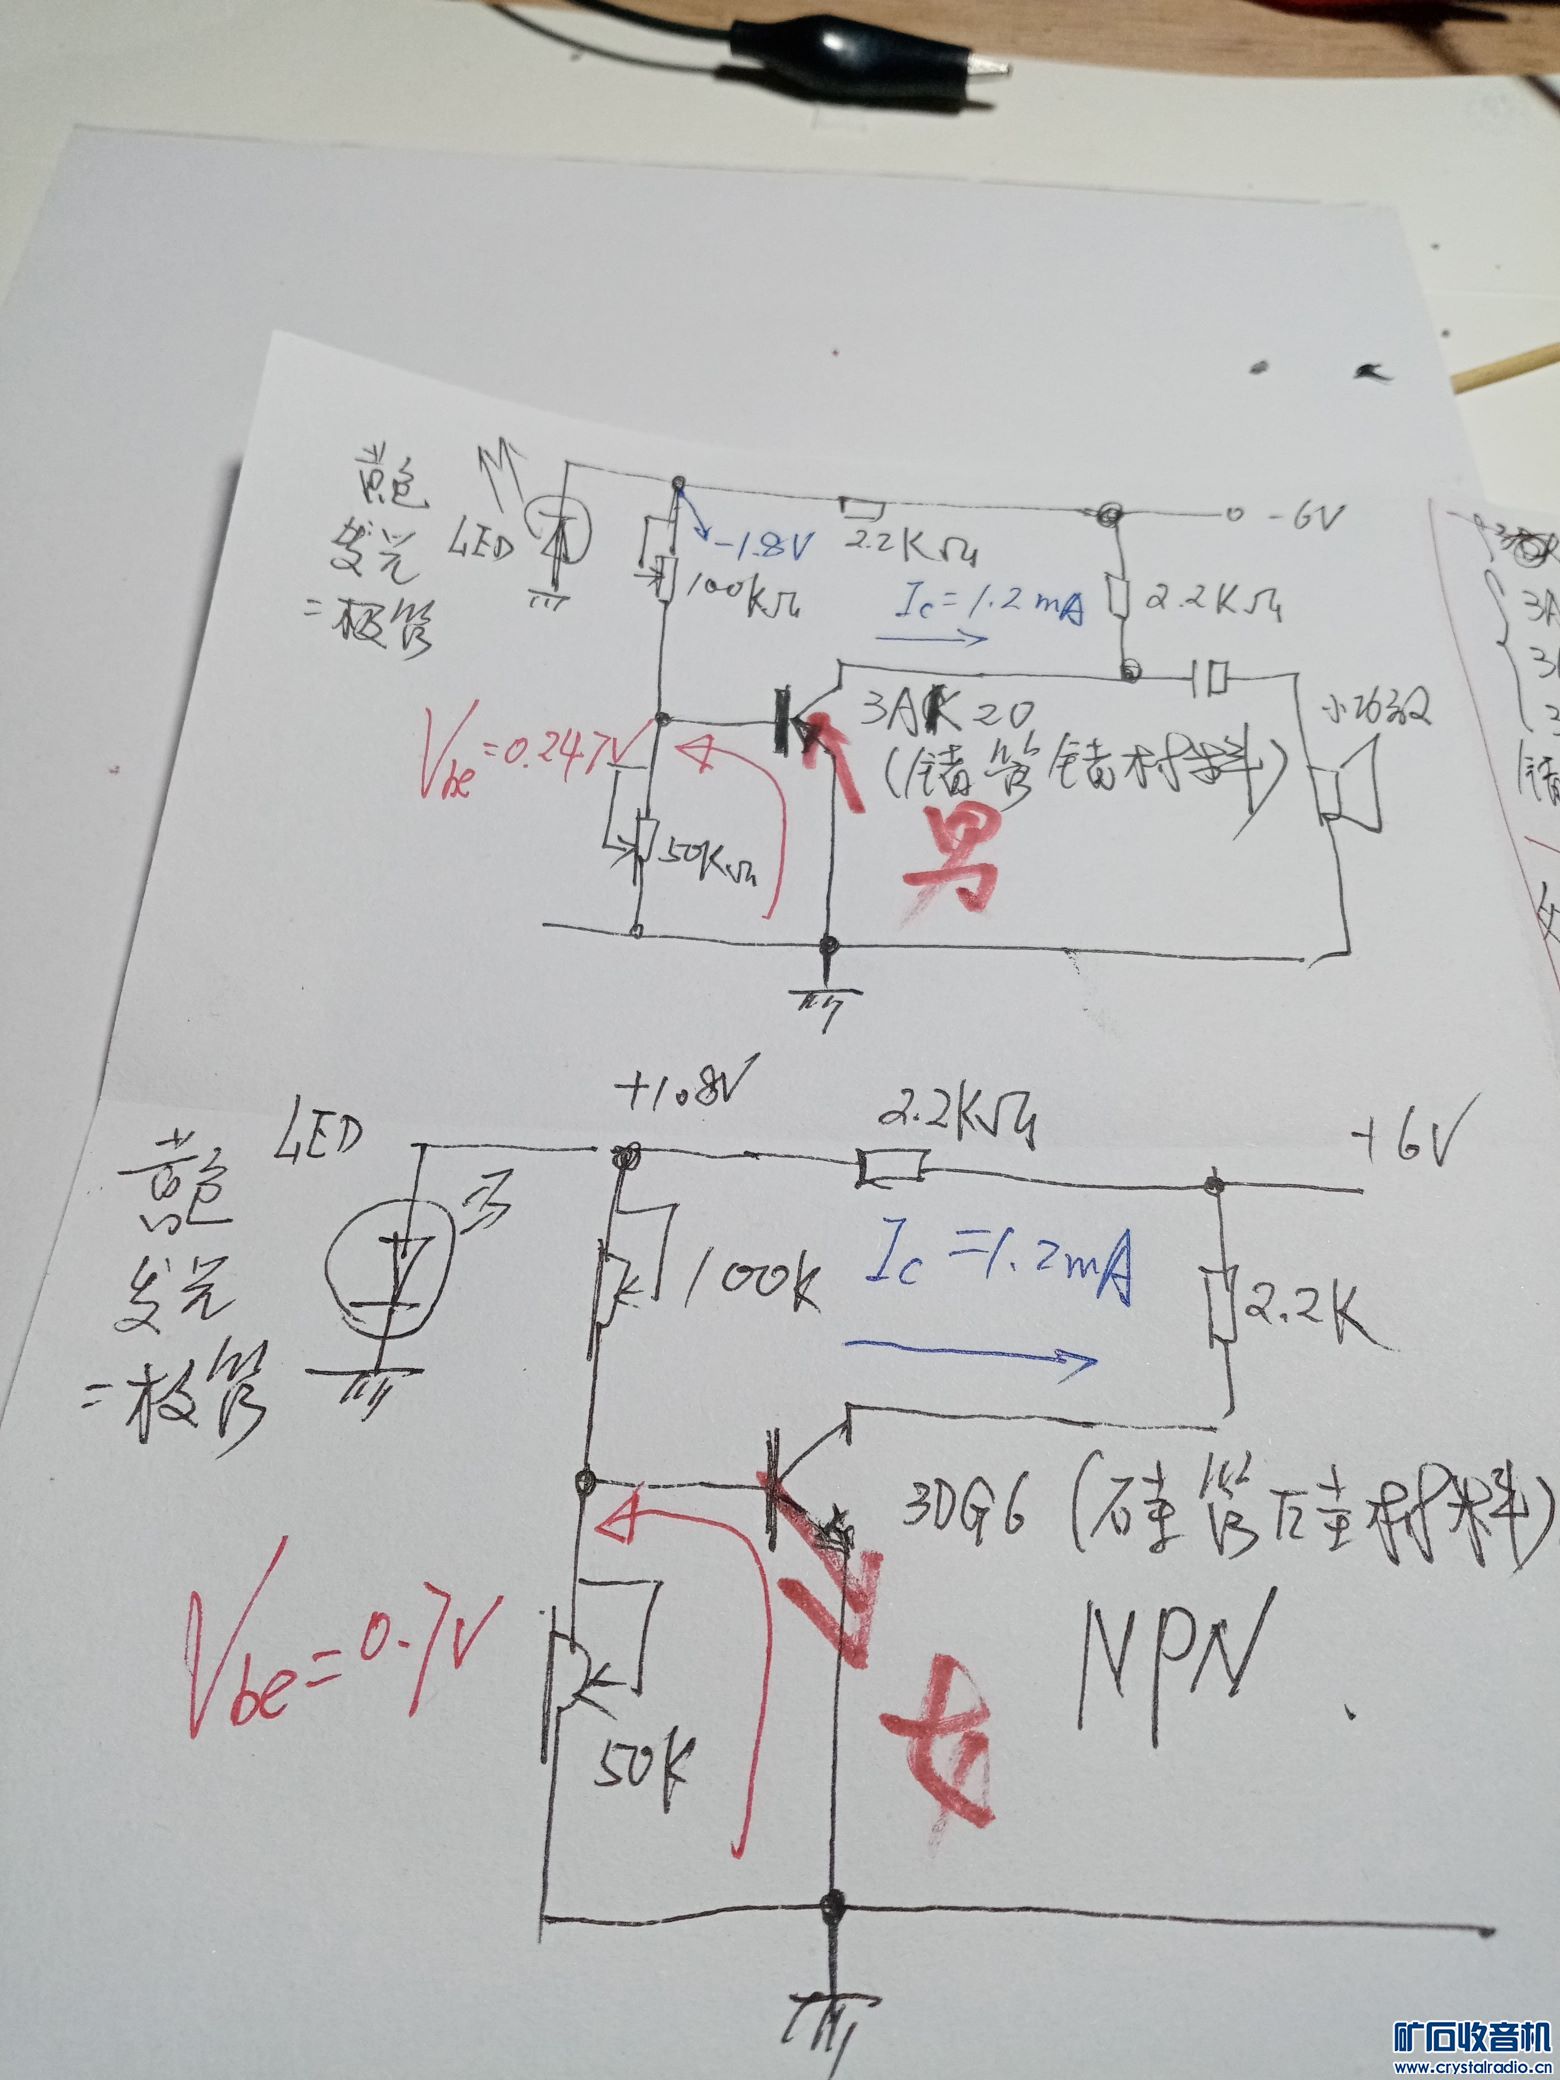 黄色
发光
二极管
LED
-1.8V
2.2KΩ
-6V
100KΩ
Ic=1.2mA
2.2KΩ
Vbe=0.247V
3AK20
(锗管锗材料)
小功放
50KΩ
男
3A
LED
黄色
发光
二极管
+1.8V
2.2KΩ
+6V
100K
Ic=1.2mA
2.2K
3DG6(硅管硅材料)
NPN
Vbe=0.7V
50K
女
矿石收音机
www.crystalradio.cn